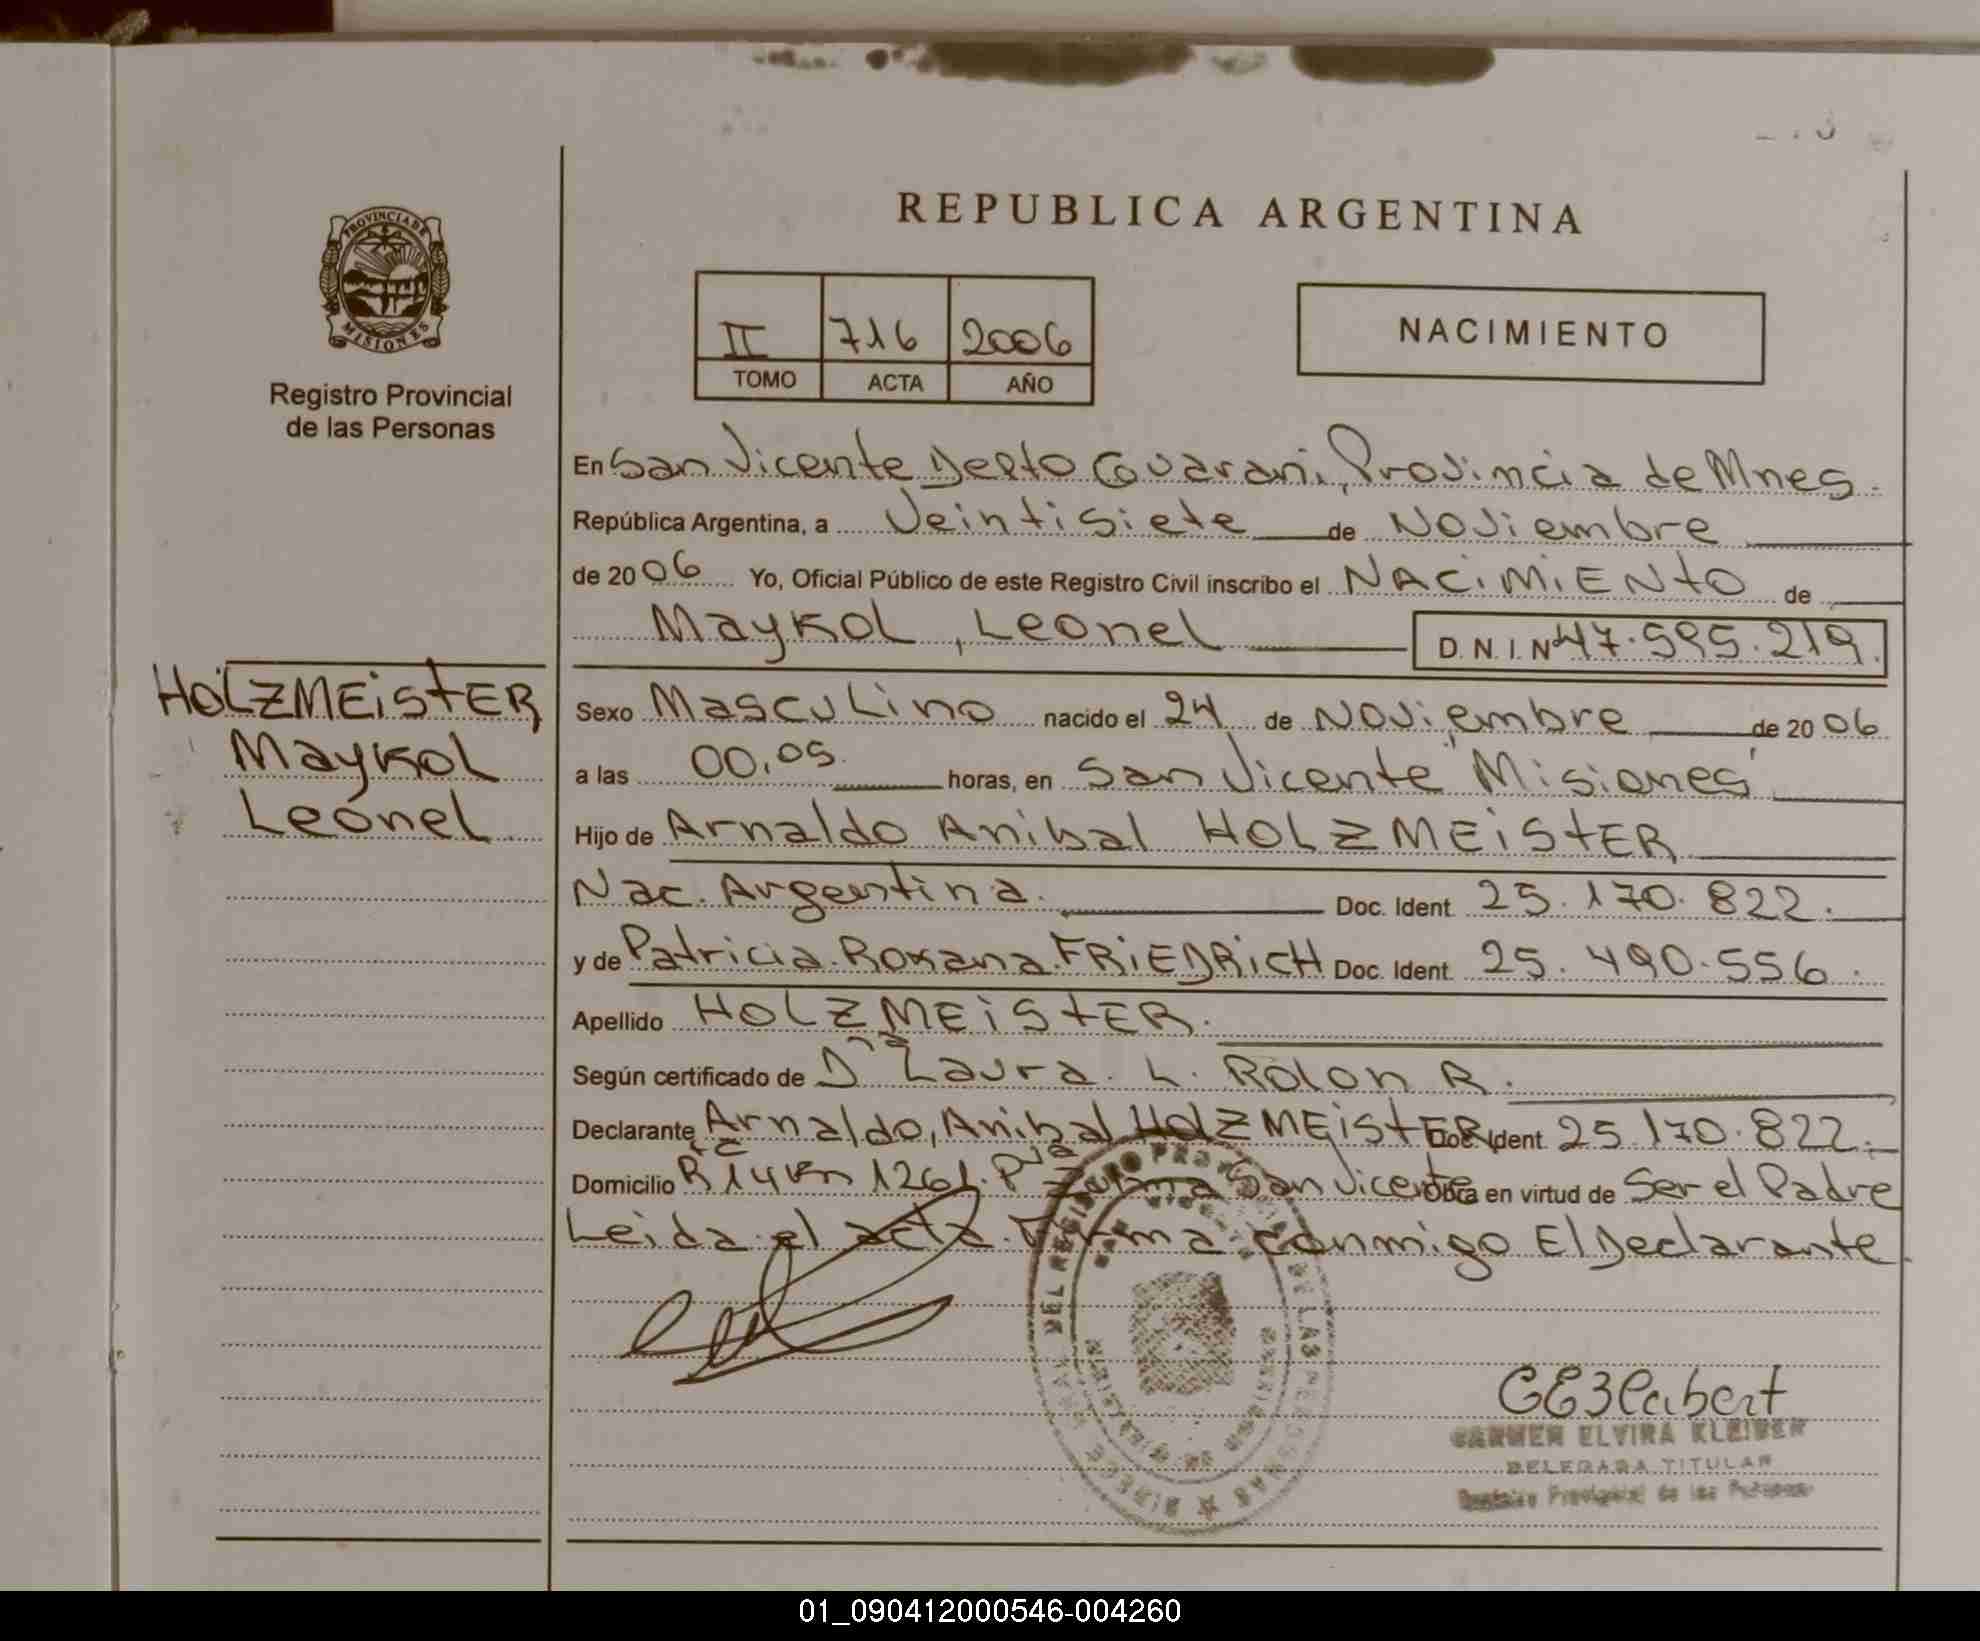 REPUBLICA ARGENTINA
PROVINCIA DE
MISIONES
Registro Provincial
de las Personas
II 716 2006
TOMO ACTA AÑO
NACIMIENTO
En San Vicente Depto Guarani, Provincia de Mnes.
República Argentina, a Veintisiete de Noviembre
de 2006 Yo, Oficial Público de este Registro Civil inscribo el NACiMiENtO de
Maykol, Leonel D.N.I.Nº 47.595.219.
HOLZMEiStER
Maykol
Leonel
Sexo Masculino nacido el 24 de Noviembre de 2006
a las 00,05 horas, en San Vicente Misiones
Hijo de Arnaldo Anibal HOLZMEiStER
Nac. Argentina. Doc. Ident. 25.170.822.
y de Patricia Roxana FRiEDRicH Doc. Ident. 25.490.556.
Apellido HOLZMEiStER.
Según certificado de Dra Laura. L. Rolon R.
Declarante Arnaldo, Anibal HOLZMEiStER Doc. Ident. 25.170.822.
Domicilio R 14 Km 1261. San Vicente Obra en virtud de Ser el Padre
Leida el acta Firma conmigo El Declarante.
CARMEN ELVIRA KLEIBER
DELEGADA TITULAR
Provincial de las Personas
01_090412000546-004260